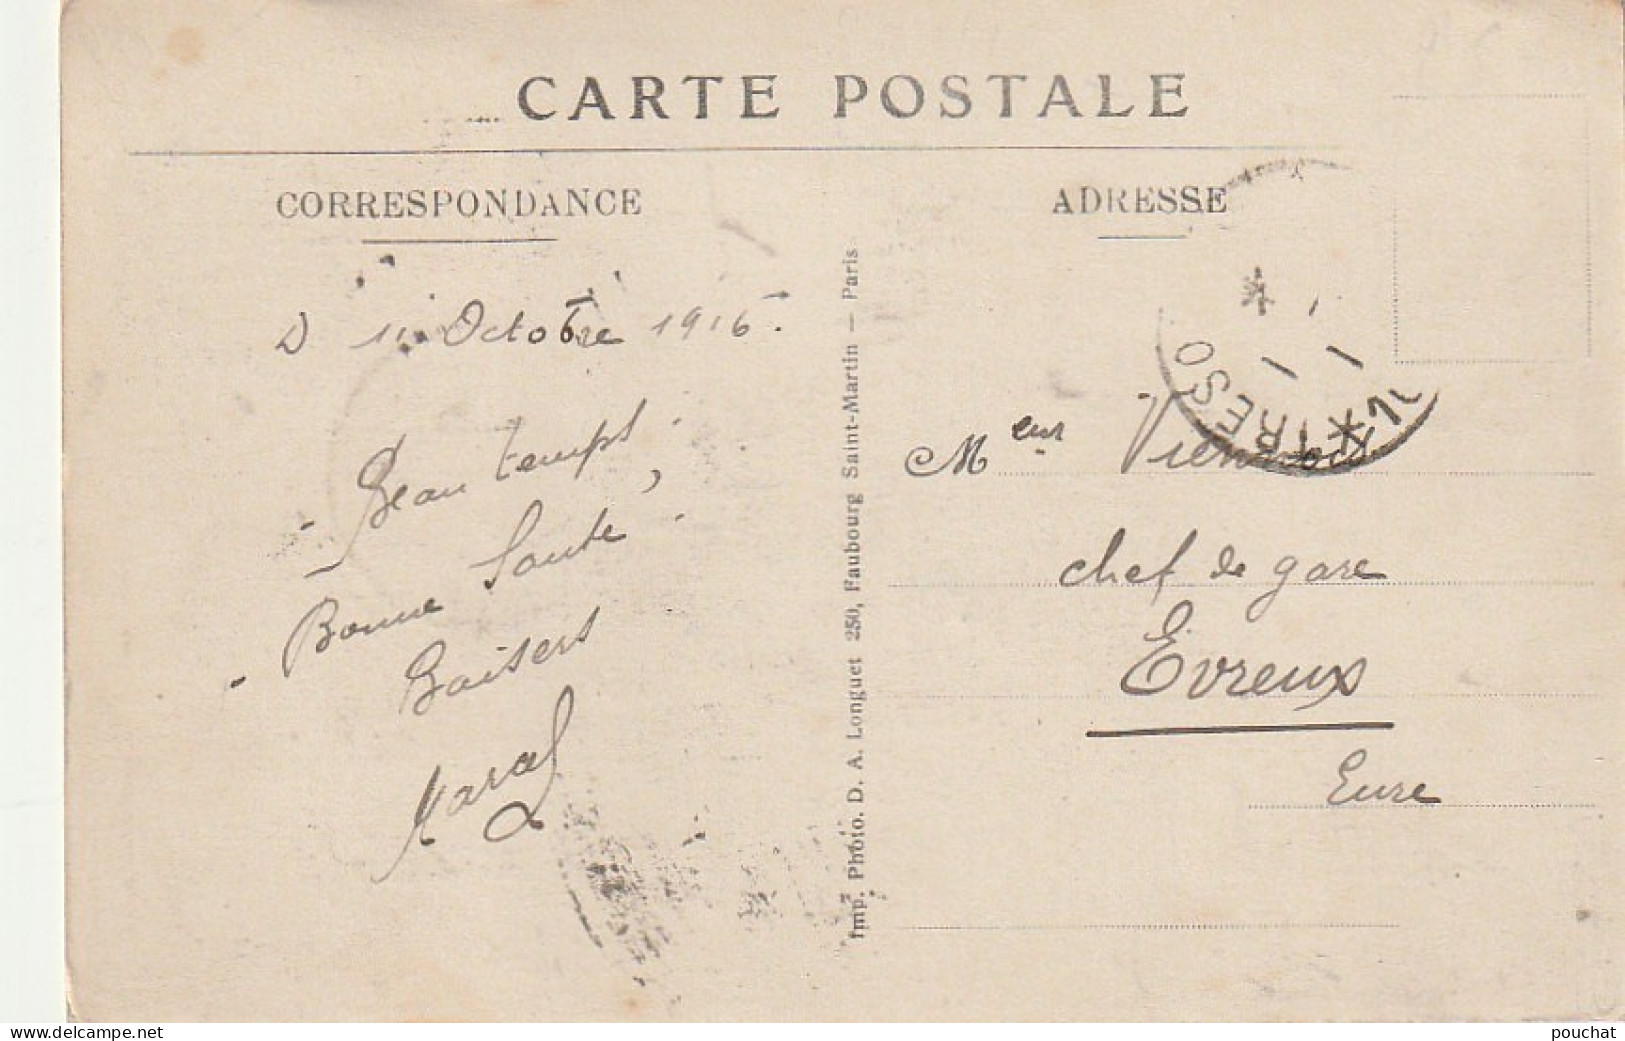 CARTE POSTALE
CORRESPONDANCE
ADRESSE
D 11 Octobre 1916.
- Beau temps.
- Bonne Santé,
Baisers
Marcel
Imp. Photo. D. A. Longuet 250, Faubourg Saint-Martin — Paris
TRESO
Meur
chef de gare
Evreux
Eure
pouchat